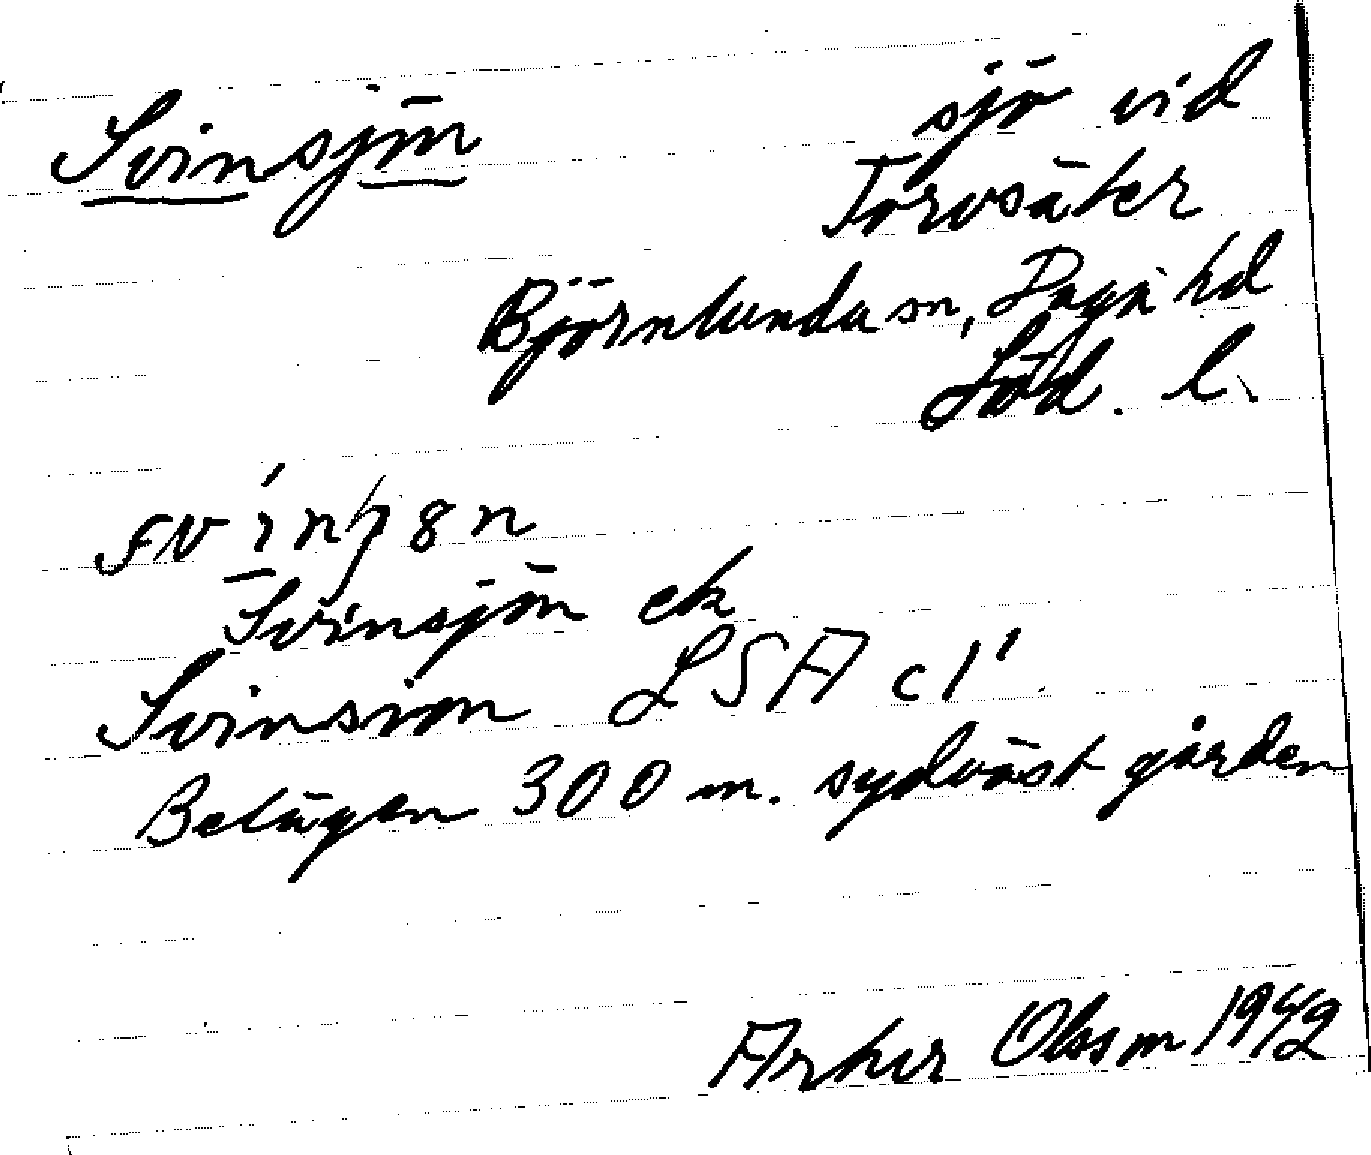 Svinsjön
sjö vid
Torvsäter
Björnlunda sn, Daga hd
Söd. l.
Svinsjön ek
Svinsion LSA c1'
Belägen 300 m. sydväst gården
Olsson 1942